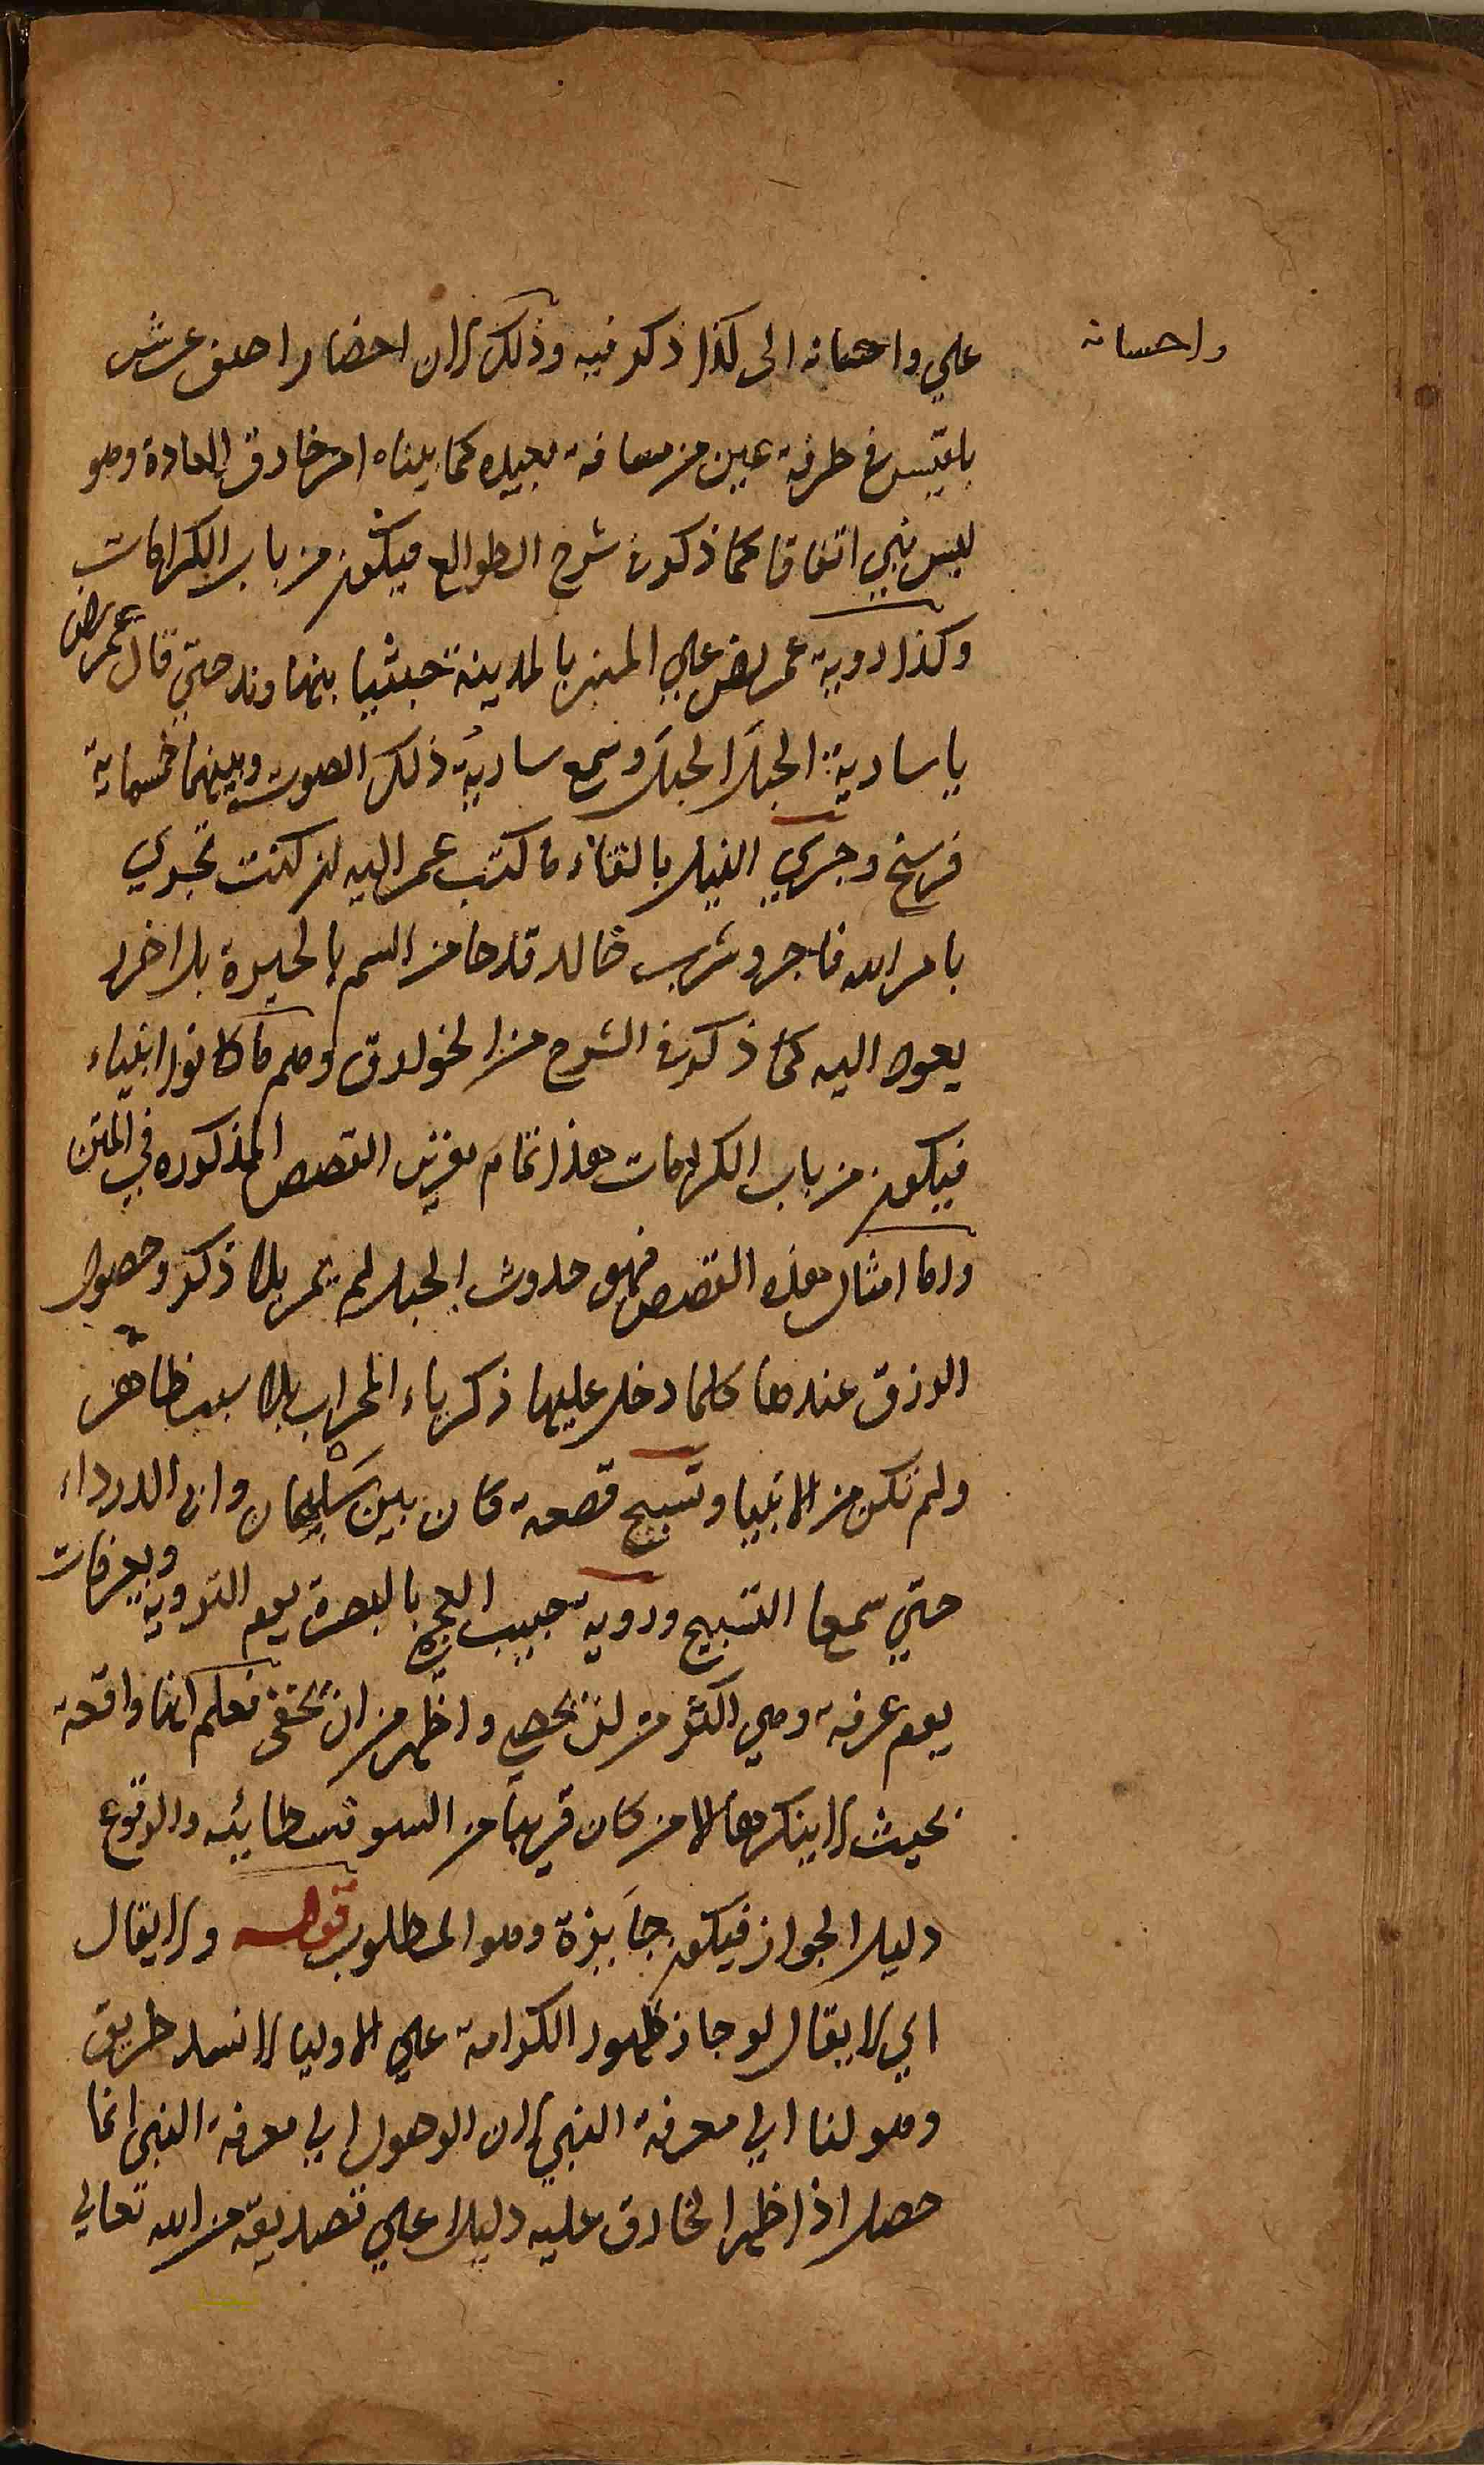 واحسانه
علي واحسانه الى كذا ذكر فيه وذلك لان احضار اصف عرش
بلقيس في طرفة عين من مسافة بعيده كما بيناه امر خارق العادة وهو
ليس بنبي اتفاقا كما ذكر في شرح الطوالع فيكون من باب الكرامات
وكذا روية عمر رضي علي المنبر بالمدينة جيشا بنهاوند حتي قال عمر رض
يا سارية الجبل الجبل وسمع سارية ذلك الصوت وبينهما خمسماية
فرسخ وجري النيل بالقاء ما كتب عمر اليه ان كنت تجري
بامر الله فاجر وشرب خالد قدحا من السم بالحيرة بلا ضرر
يعود اليه كما ذكر في الشرح من الخوارق وهم ما كانوا انبياء
فيكون من باب الكرامات هذا تمام القصص المذكوره في المتن
واما امثال هذه القصص فهو حدوث الحبل لمريم بلا ذكر وحصول
الرزق عندها كلما دخل عليها زكرياء المحراب بلا سبب ظاهر
ولم تكن من الانبيا وتسبيح قصعة كان بين سليمان وابي الدرداء
حتي سمعا التسبيح وروية حبيب العجمي بالبصرة يوم التروية وبعرفات
يوم عرفة وهي اكثر من ان تحصي واظهر من ان تخفى فعلم انها واقعة
بحيث لا ينكرها الا من كان قريبا من السوفسطائيه والوقوع
دليل الجواز فيكون جايزة وهو المطلوب قوله ولا يقال
اي لا يقال لو جاز ظهور الكرامة علي الاوليا لانسد طريق
وصولنا الي معرفة النبي لان الوصول الي معرفة النبي انما
حصل اذا ظهر الخارق عليه دليلا علي تصديقه من الله تعالي